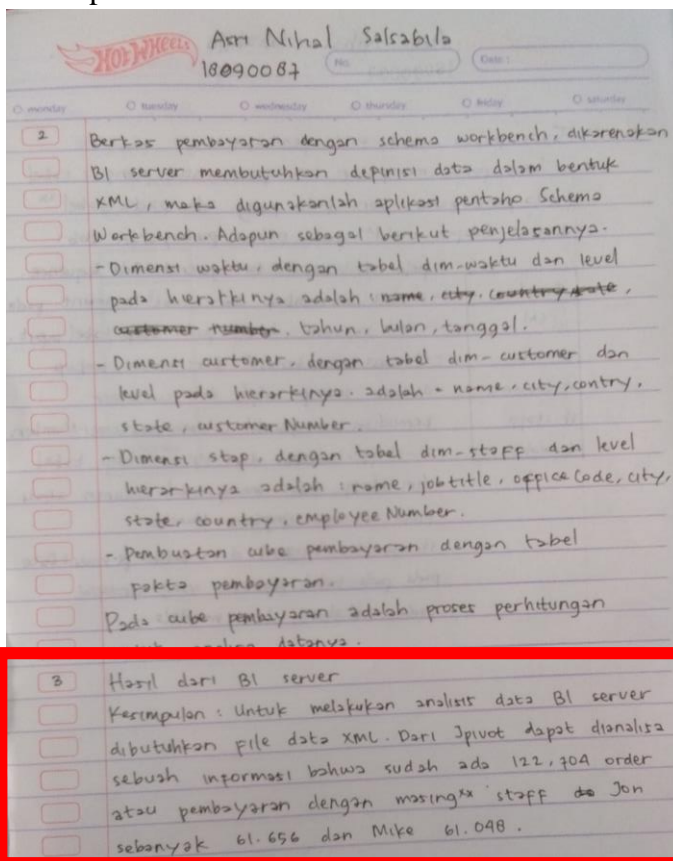 HOT WHEELS
Asri Nihal Salsabila
18090087
No.
Date :
monday tuesday wednesday thursday friday saturday
2 Berkas pembayaran dengan schema workbench, dikarenakan
BI server membutuhkan depinisi data dalam bentuk
XML, maka digunakanlah aplikasi pentaho Schema
Workbench. Adapun sebagai berikut penjelasannya.
- Dimensi waktu, dengan tabel dim-waktu dan level
pada hierarkinya adalah : name, city, country state,
customer number. tahun, bulan, tanggal.
- Dimensi customer, dengan tabel dim-customer dan
level pada hierarkinya. adalah - name, city, contry,
state, customer Number.
- Dimensi stap, dengan tabel dim-stapp dan level
hierarkinya adalah : name, jobtitle, oppice Code, city,
state, country, employee Number.
- Pembuatan cube pembayaran dengan tabel
pakta pembayaran.
Pada cube pembayaran adalah proses perhitungan
datanya.
3 Hasil dari BI server
Kesimpulan : Untuk melakukan analisis data BI server
dibutuhkan pile data XML. Dari Jpivot dapat dianalisa
sebuah inpormasi bahwa sudah ada 122,704 order
atau pembayaran dengan masing" stapp do Jon
sebanyak 61.656 dan Mike 61.048.